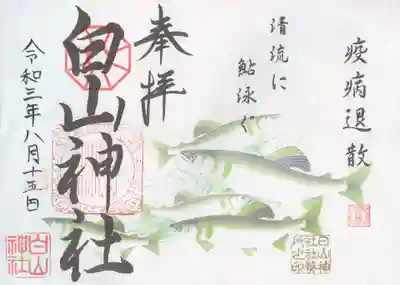 疫病退散
清流に
鮎泳ぐ
奉拝
白山神社
令和三年八月十五日
白山神
社社務
所之印
白山
神社